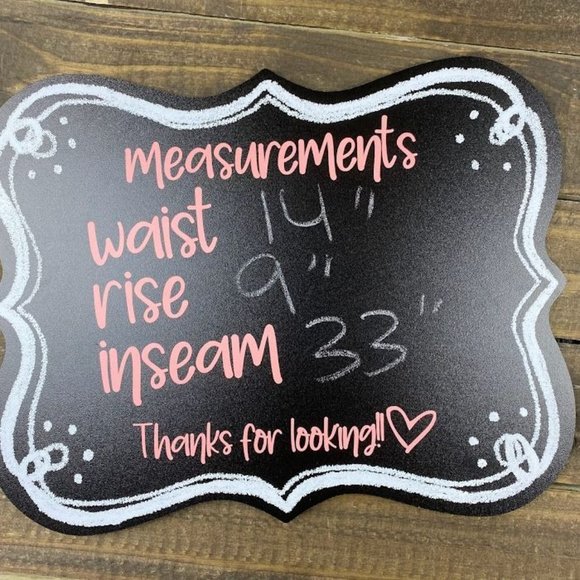 measurements
waist 14"
rise 9"
inseam 33"
Thanks for looking!!♡